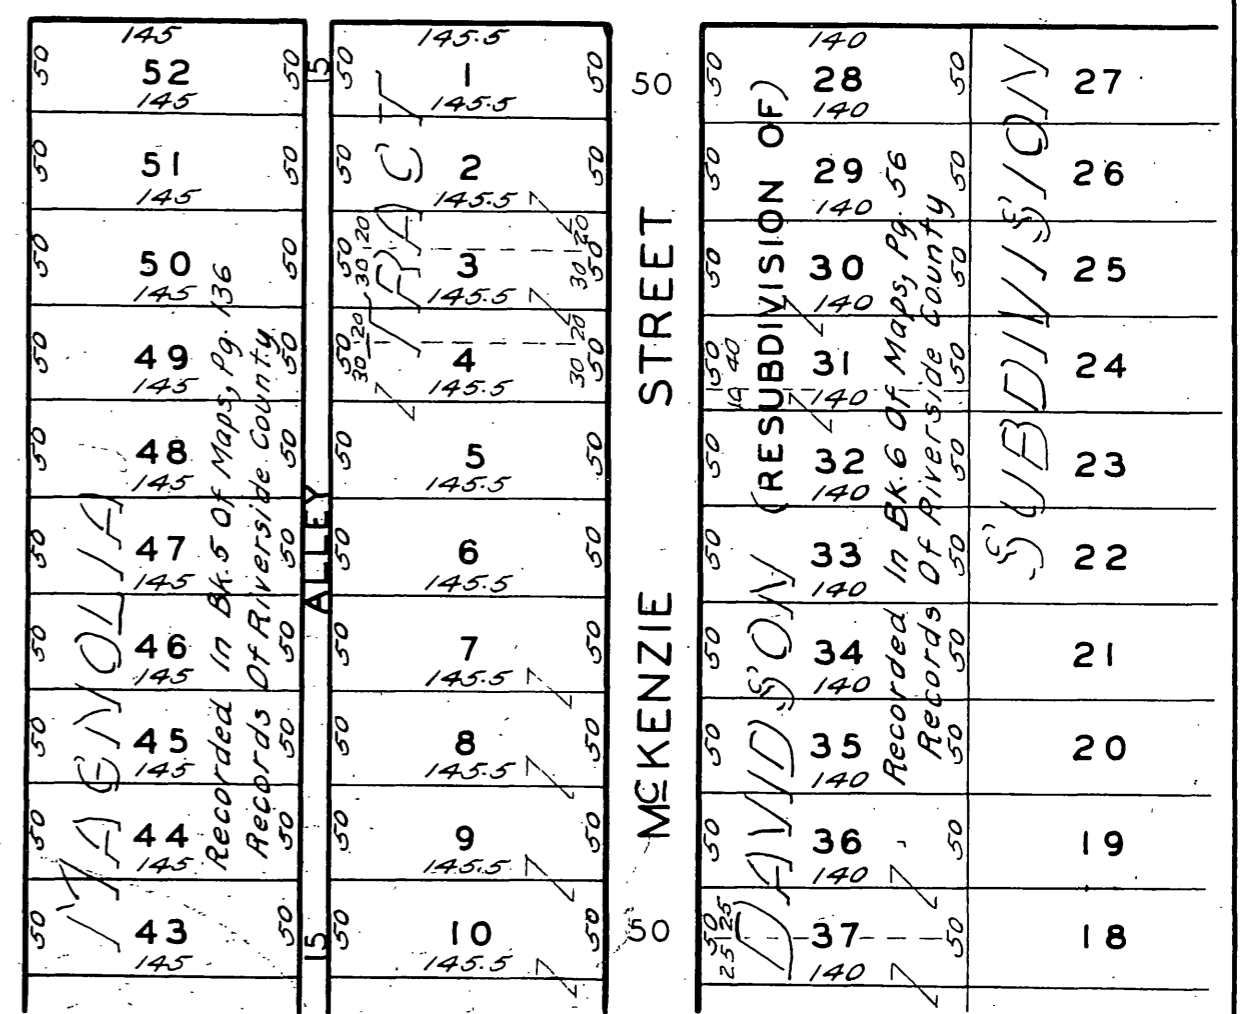 145
50 52 50
145
50 51 50
145
50 50
145
50 49 50
145
50 48 50
145
50 47 50
145
50 46 50
145
50 45 50
145
50 44 50
145
50 43 50
145
MAGNOLIA
TRACT
Recorded In Bk. 5 Of Maps, Pg. 136
Records Of Riverside County
15
ALLEY
15
145.5
50 1 50
145.5
50 2 50
145.5
20 20
50 3 50
30 30
145.5
20 20
50 4 50
30 30
145.5
50 5 50
145.5
50 6 50
145.5
50 7 50
145.5
50 8 50
145.5
50 9 50
145.5
50 10 50
145.5
50
McKENZIE STREET
50
140
50 28 50
140
50 29 50
140
50 30 50
140
40
50 31 50
10
140
50 32 50
140
50 33 50
140
50 34 50
140
50 35 50
140
50 36 50
140
25
50 37 50
25
140
DAVIDSON SUBDIVISION
(RESUBDIVISION OF)
Recorded In Bk. 6 Of Maps, Pg. 56
Records Of Riverside County
27
26
25
24
23
22
21
20
19
18